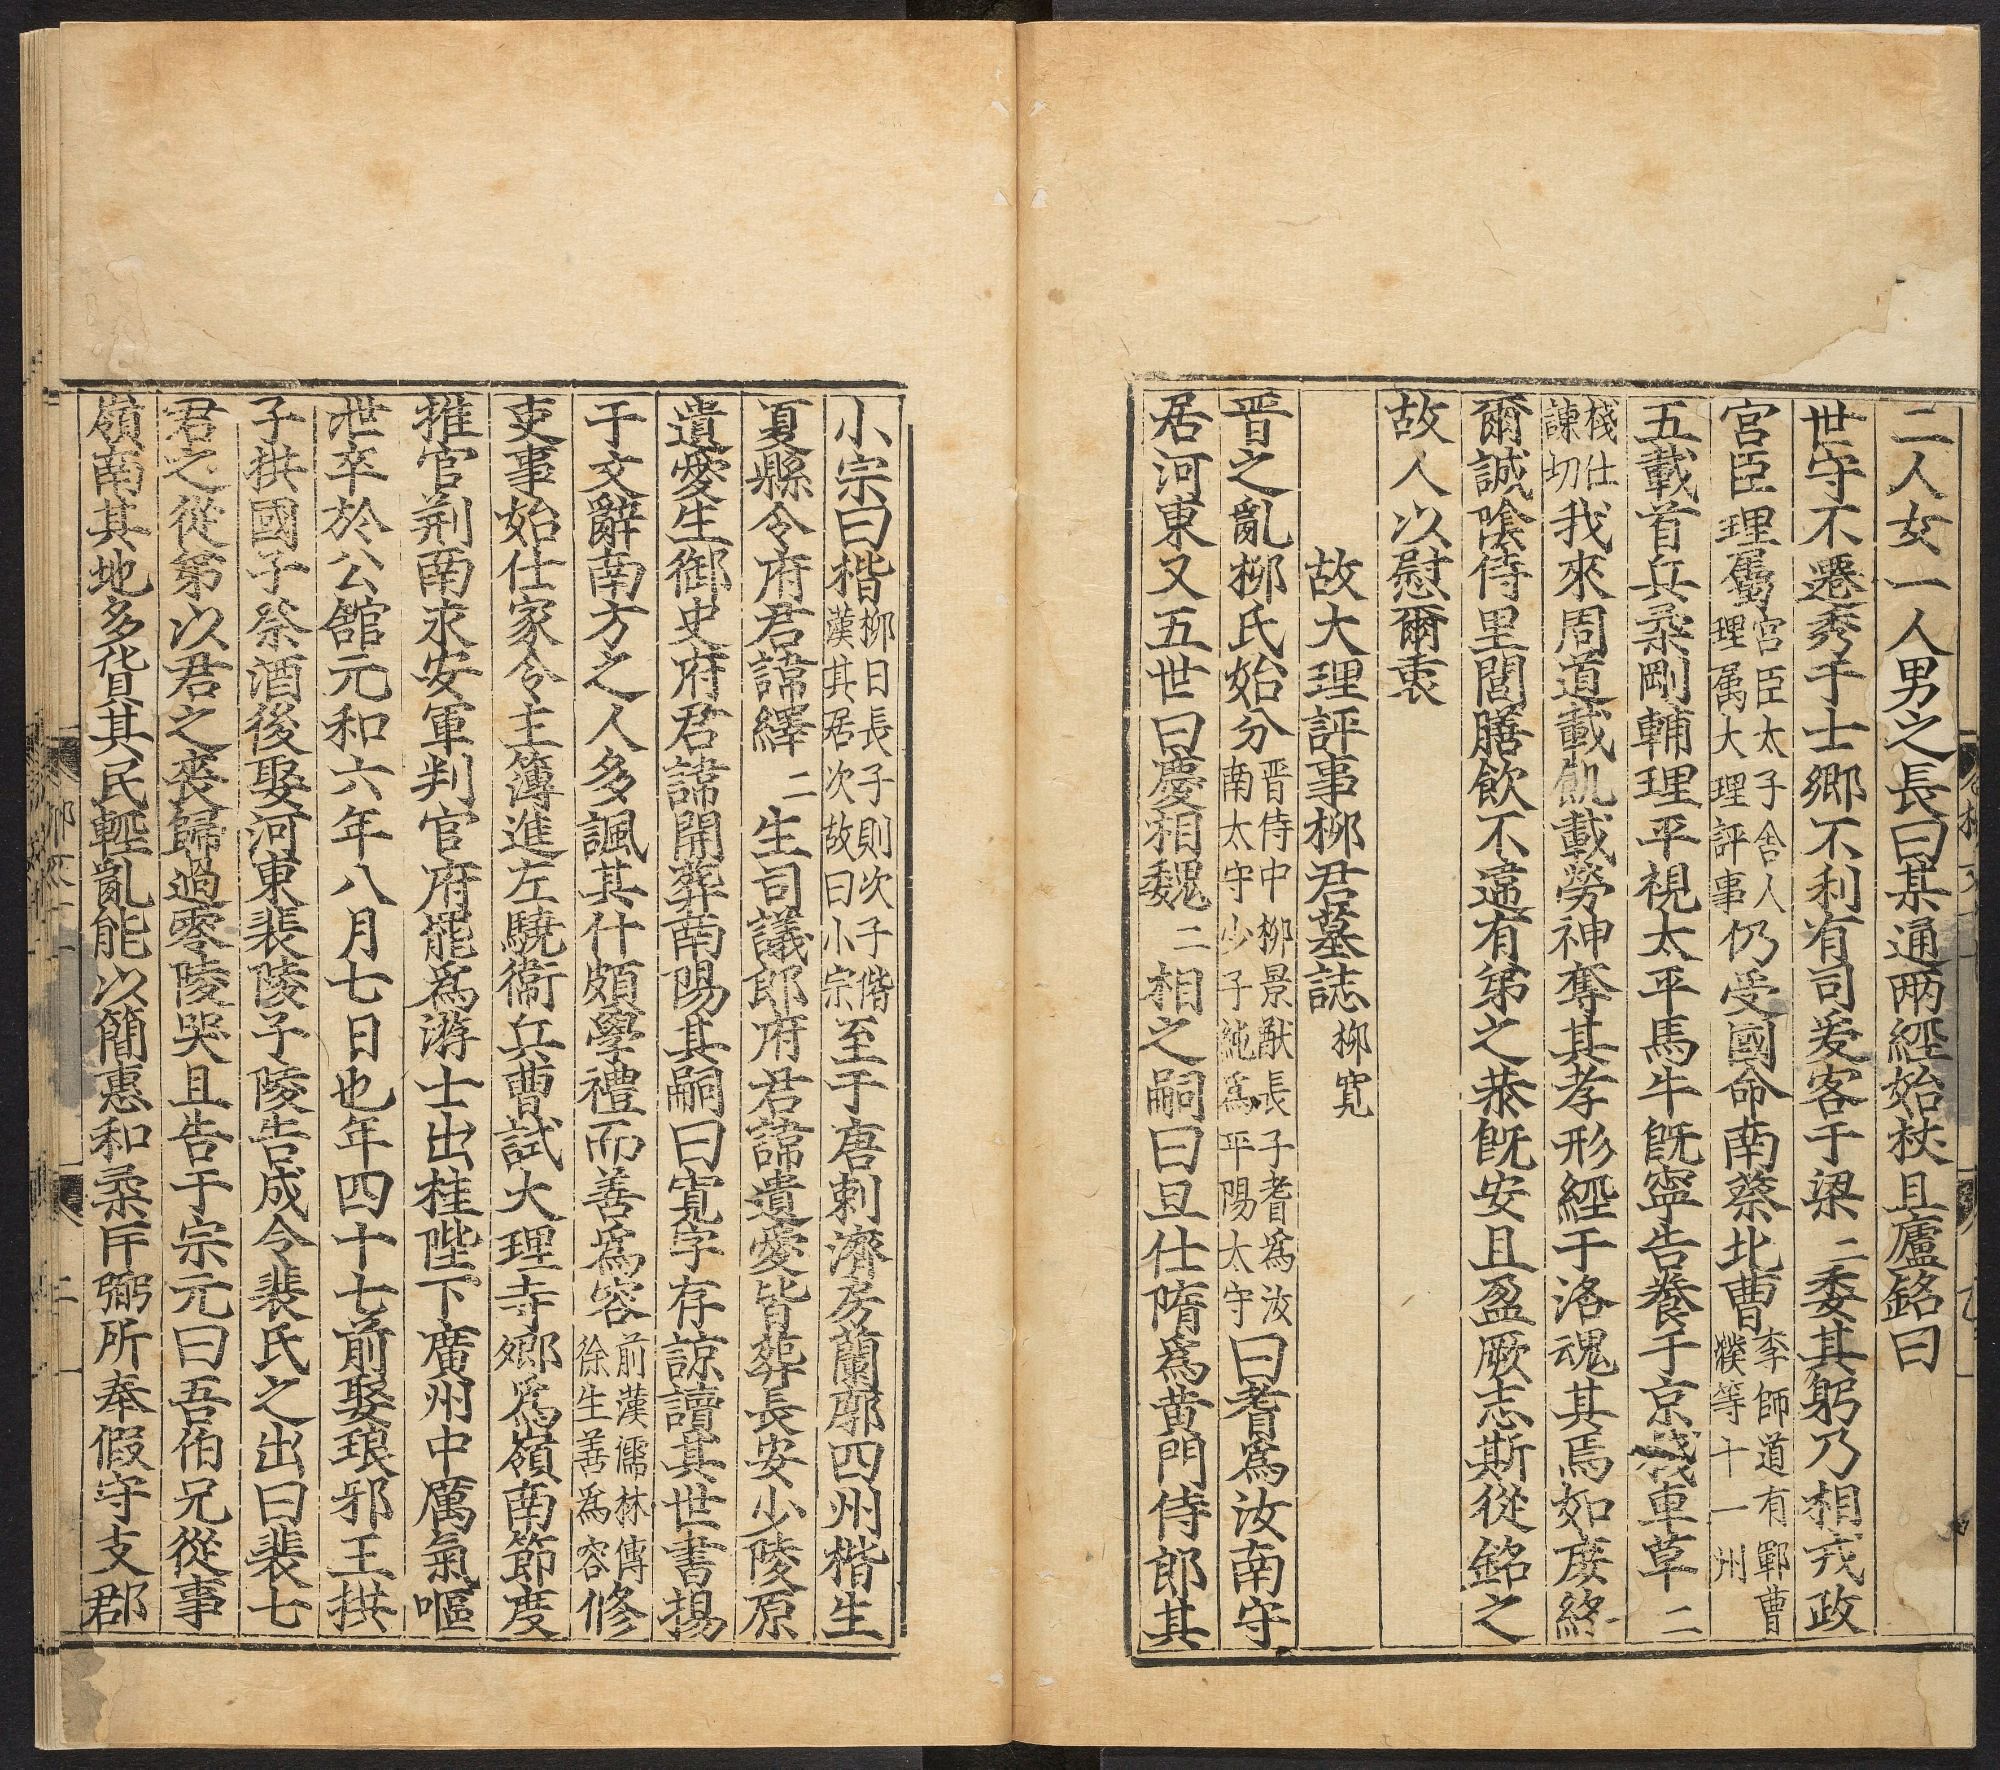 二人女一人男之長曰某通兩經始杖且廬銘曰
世守不遷秀于士鄉不利有司爰客于梁二委其躬乃相戎政
宮臣理屬宮臣太子舍人理属大理評事仍受國命南蔡北曹李師道有鄆曹濮等十一州
五載首兵柔剛輔理平視太平馬牛旣寧告養于京棧車草二
棧仕諫切我來周道載飢載勞神奪其孝形經于洛魂其焉如廢終
爾誠陰侍里閭膳飲不違有弟之恭旣安且盈厥志斯從銘之
故人以慰爾衷
故大理評事柳君墓誌柳寬
晋之亂柳氏始分晋侍中柳景猷長子耆爲汝南太守少子純爲平陽太守曰耆爲汝南守
居河東又五世曰慶相魏二相之嗣曰旦仕隋爲黄門侍郎其
小宗曰楷柳日長子則次子偕漢其居次故曰小宗至于唐刺濟房蘭廓四州楷生
夏縣令府君諱繹二生司議郎府君諱遺愛皆葬長安少陵原
遺愛生御史府君諱開葬南陽其嗣曰寬字存諒讀其世書揚
于文辭南方之人多諷其什頗學禮而善爲容前漢儒林傳徐生善爲容修
吏事始仕家令主簿進左驍衞兵曹試大理寺鄉爲嶺南節度
推官荆南永安軍判官府罷爲游士出桂陛下廣州中厲氣嘔
泄卒於公舘元和六年八月七日也年四十七前娶琅邪王拱
子拱國子祭酒後娶河東裴陵子陵告成令裴氏之出曰裴七
君之從弟以君之喪歸過零陵哭且告于宗元曰吾伯兄從事
嶺南其地多貨其民輕亂能以簡惠和柔匡弼所奉假守支郡